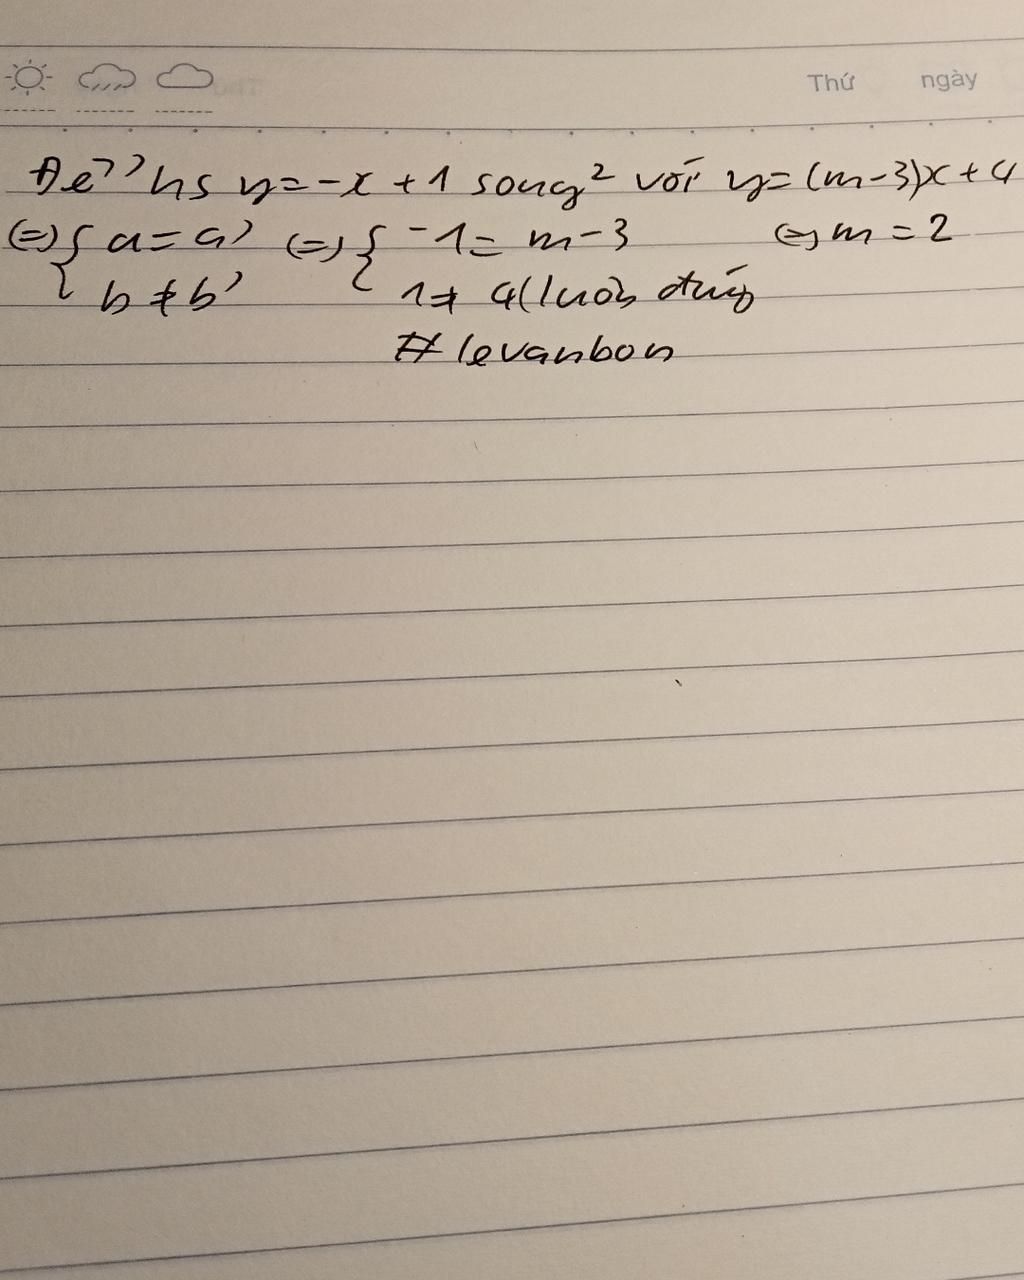 Thứ ngày
Để hs y=-x+1 song² với y=(m-3)x+4
⇔{ a=a' ⇔{ -1=m-3 ⇔m=2
b≠b' 1≠4(luôn đúng
# levanbon